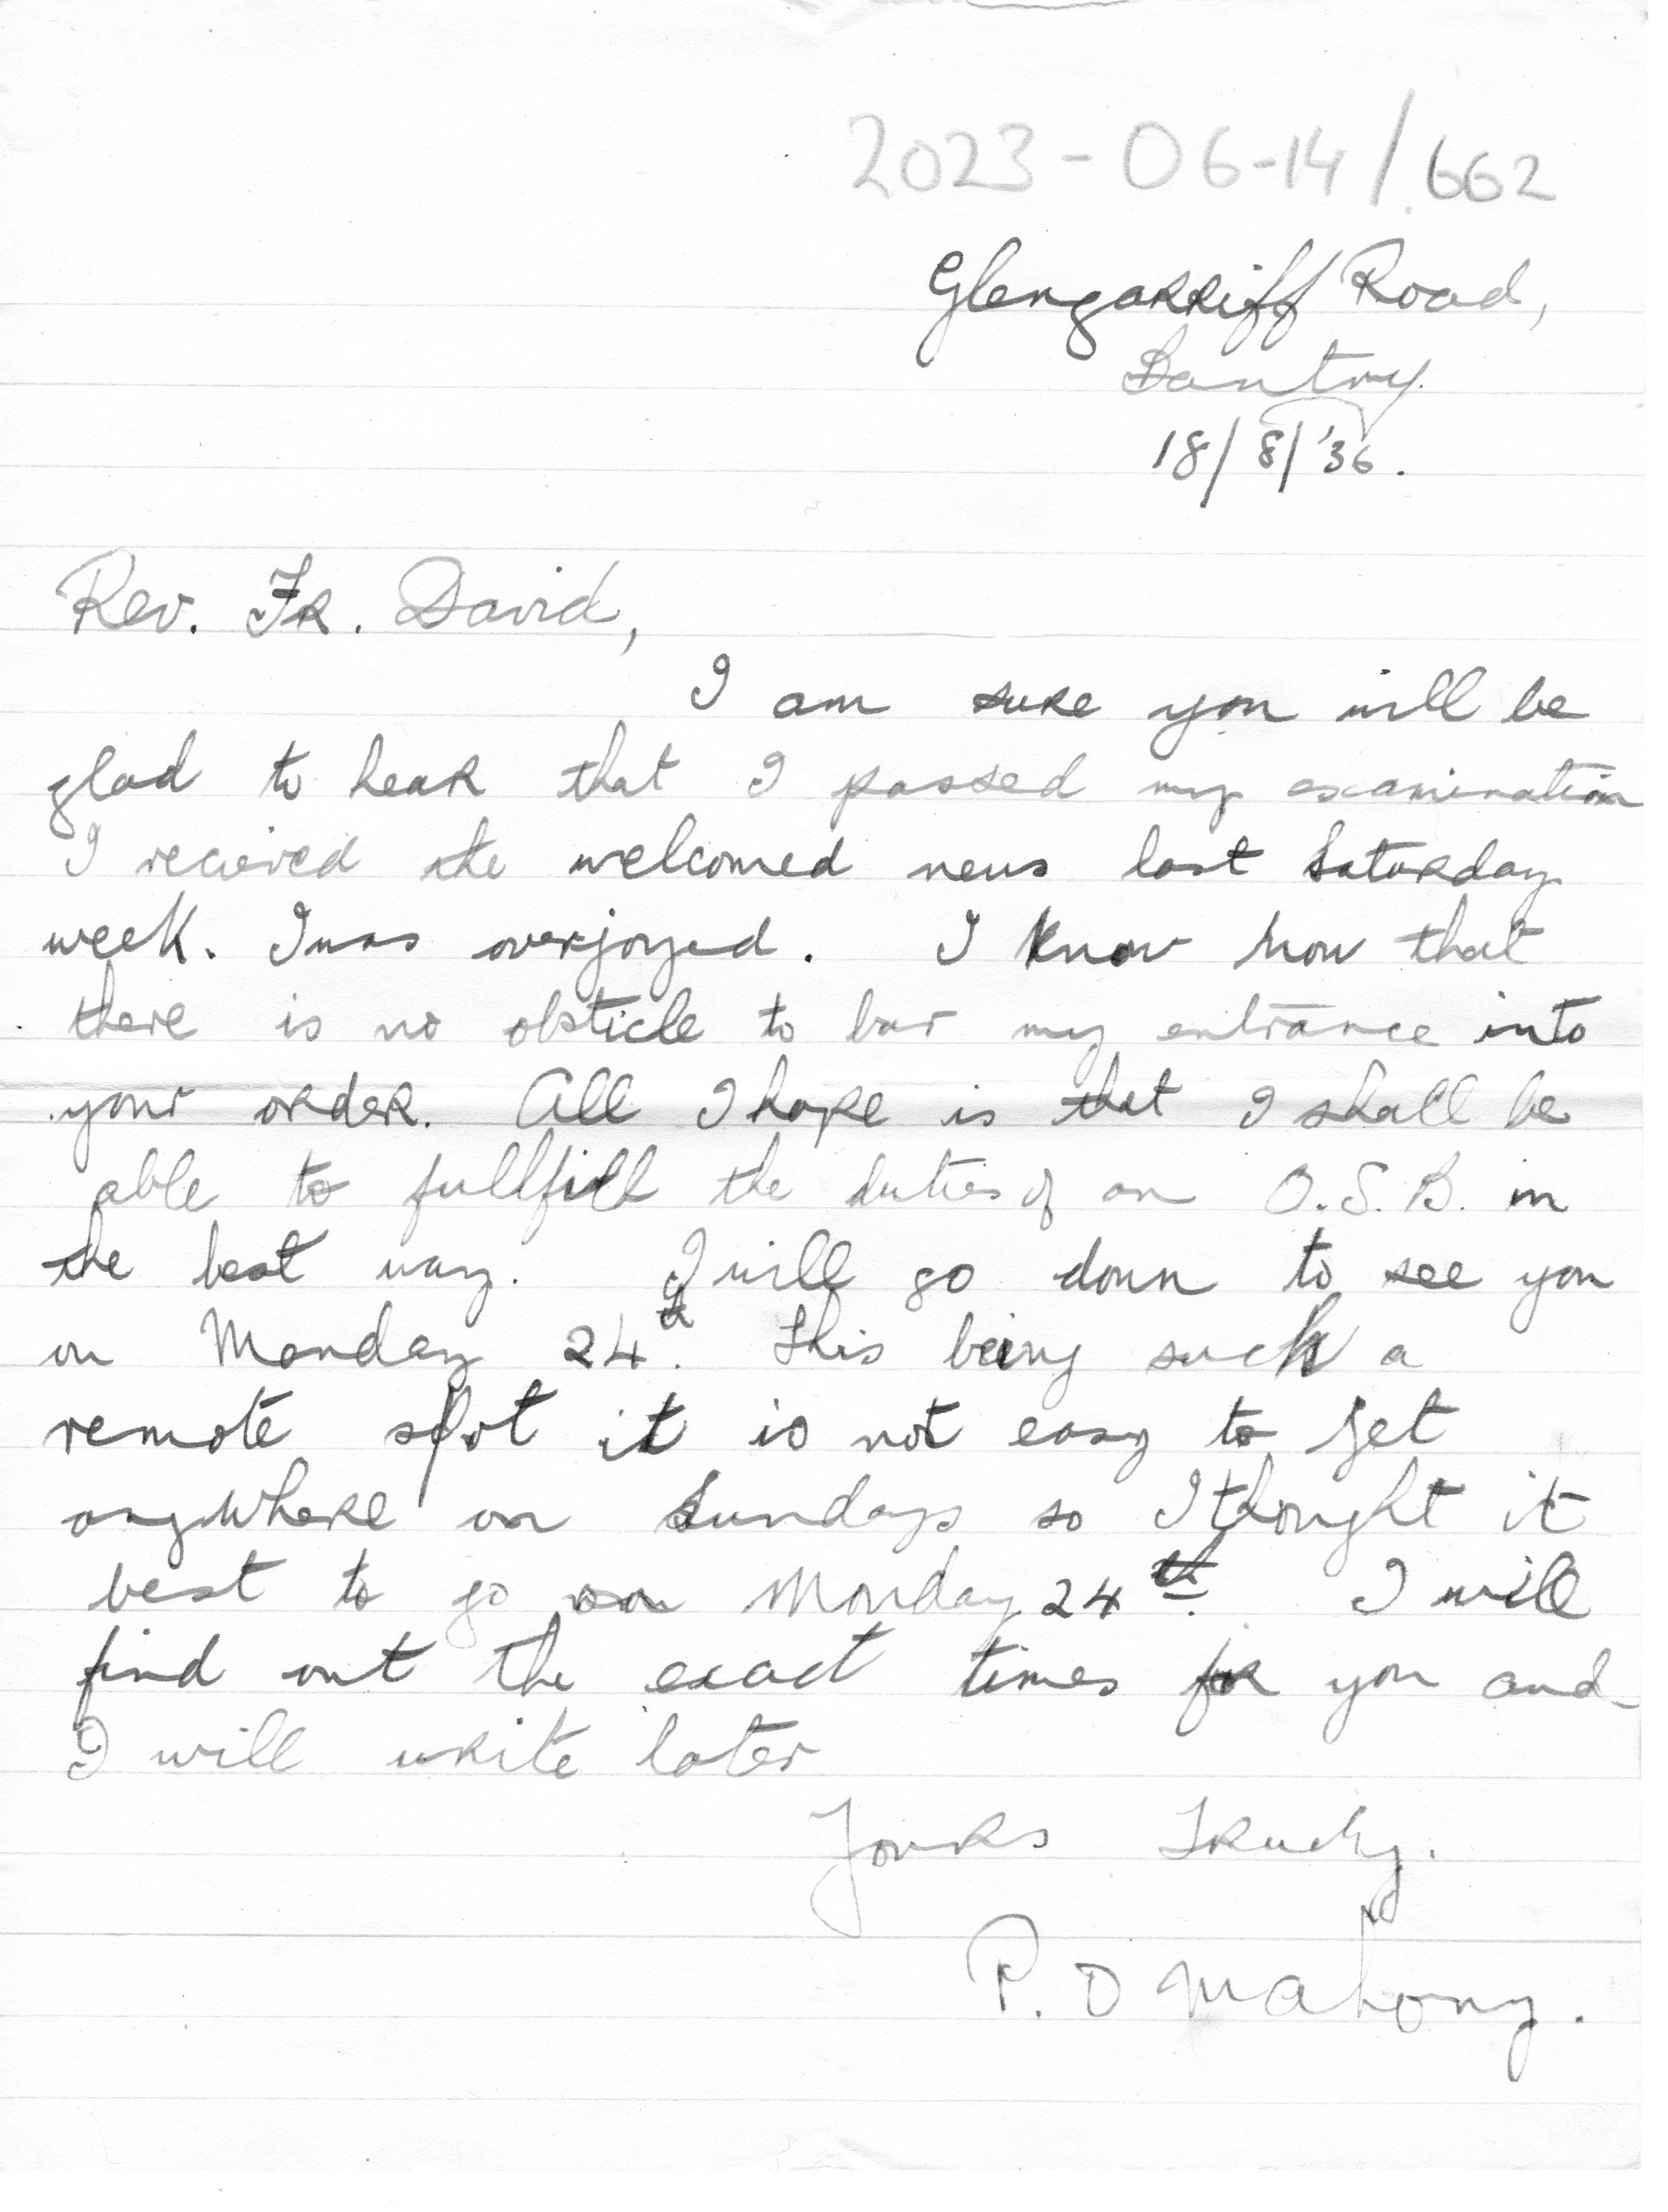 2023-06-14/662
Glengarriff Road,
Bantry.
18/8/'36.
Rev. Fr. David,
I am sure you will be
glad to hear that I passed my examination
I recieved the welcomed news last Saturday
week. I was overjoyed. I know now that
there is no obsticle to bar my entrance into
your order. All I hope is that I shall be
able to fullfill the duties of an O.S.B. in
the best way. I will go down to see you
on Monday 24th. This being such a
remote spot it is not easy to get
anywhere on Sundays so I thought it
best to go on Monday 24th. I will
find out the exact times for you and
I will write later
Yours Truly.
P. O Mahony.